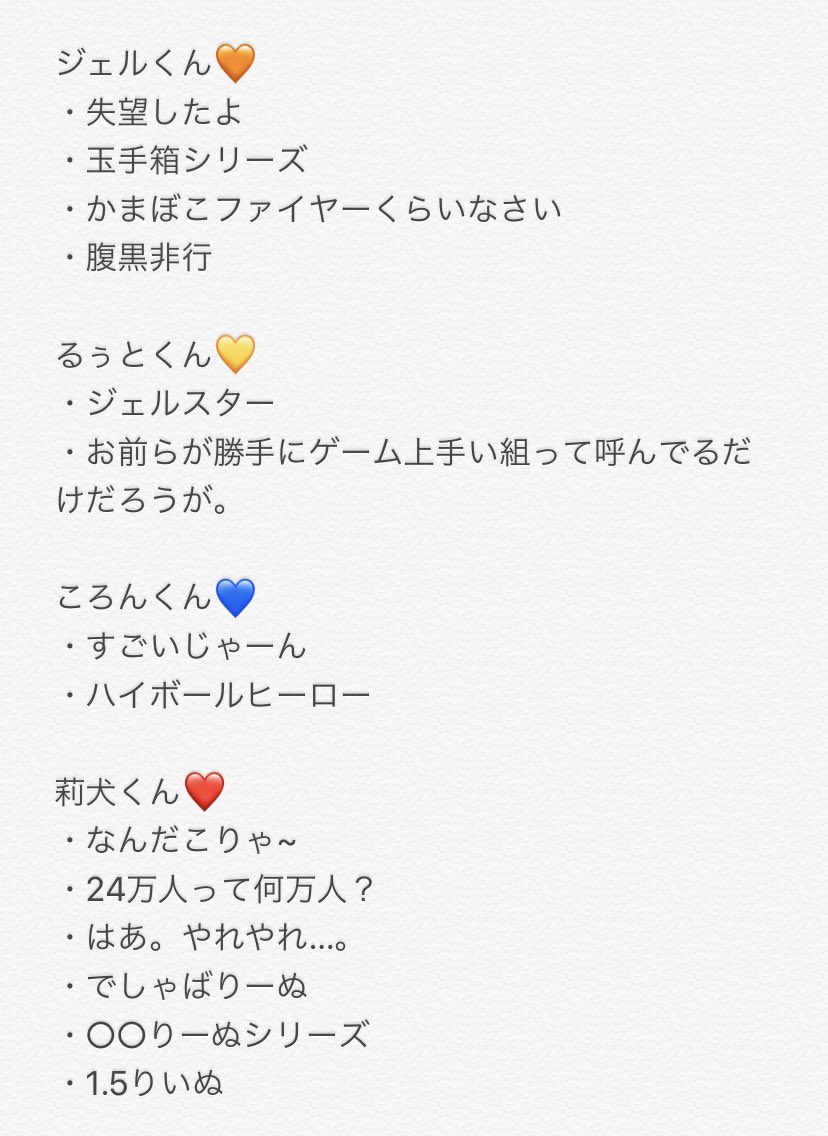 ジェルくん🧡
・失望したよ
・玉手箱シリーズ
・かまぼこファイヤーくらいなさい
・腹黒非行
るぅとくん💛
・ジェルスター
・お前らが勝手にゲーム上手い組って呼んでるだ
けだろうが。
ころんくん💙
・すごいじゃーん
・ハイボールヒーロー
莉犬くん❤️
・なんだこりゃ~
・24万人って何万人？
・はあ。やれやれ...。
・でしゃばりーぬ
・〇〇りーぬシリーズ
・1.5りいぬ